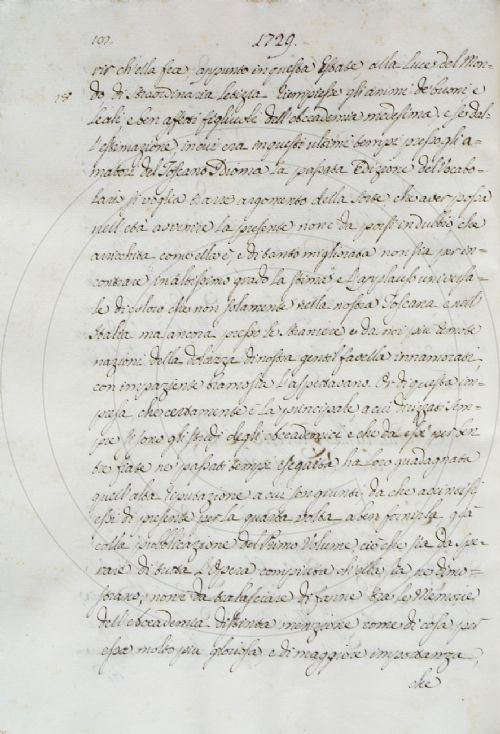 107. 1729.
rir ch'ella fece appunto in questa Estate alla luce del Mon=
do di straordinaria letizia riempiesse gli animi de' buoni e
leali e ben affetti figliuoli dell'Accademia medesima, e se dal=
l'estimazione, in cui era in questi ultimi tempi presso gli a=
matori del Toscano Idioma la passata Edizione del Vocabo=
lario si voglia trarre argomento della sorte che aver possa
nell'età avvenire la presente non è da porsi in dubbio, che
arricchita come ella è, e di tanto migliorata non sia per in=
contrare in altissimo grado la stima e l'applauso universa=
le di coloro che non solamente nella nostra Toscana e nell'
Italia ma ancora presso le straniere e da noi più remote
nazioni della dolcezza di nostra gentil favella innamorati
con impaziente bramosia l'aspettavano. Or di questa im=
presa che certamente è la principale a cui dirizzati sem=
pre si sono gli studi degli Accademici e che da essi per ben
tre fiate ne' passati tempi eseguita ha loro guadagnata
quell'alta riputazione a cui son giunti, da che accintisi
essi di presente per la quarta volta a ben fornirla già
colla pubblicazione del Primo Volume, ciò che sia da spe=
rare di tutta l'Opera compiuta ch'ella sia ne dimo=
strano, non è da tralasciare di farne tra le Memorie
dell'Accademia distinta menzione come di cosa per
essa molto più gloriosa e di maggiore importanza,
che